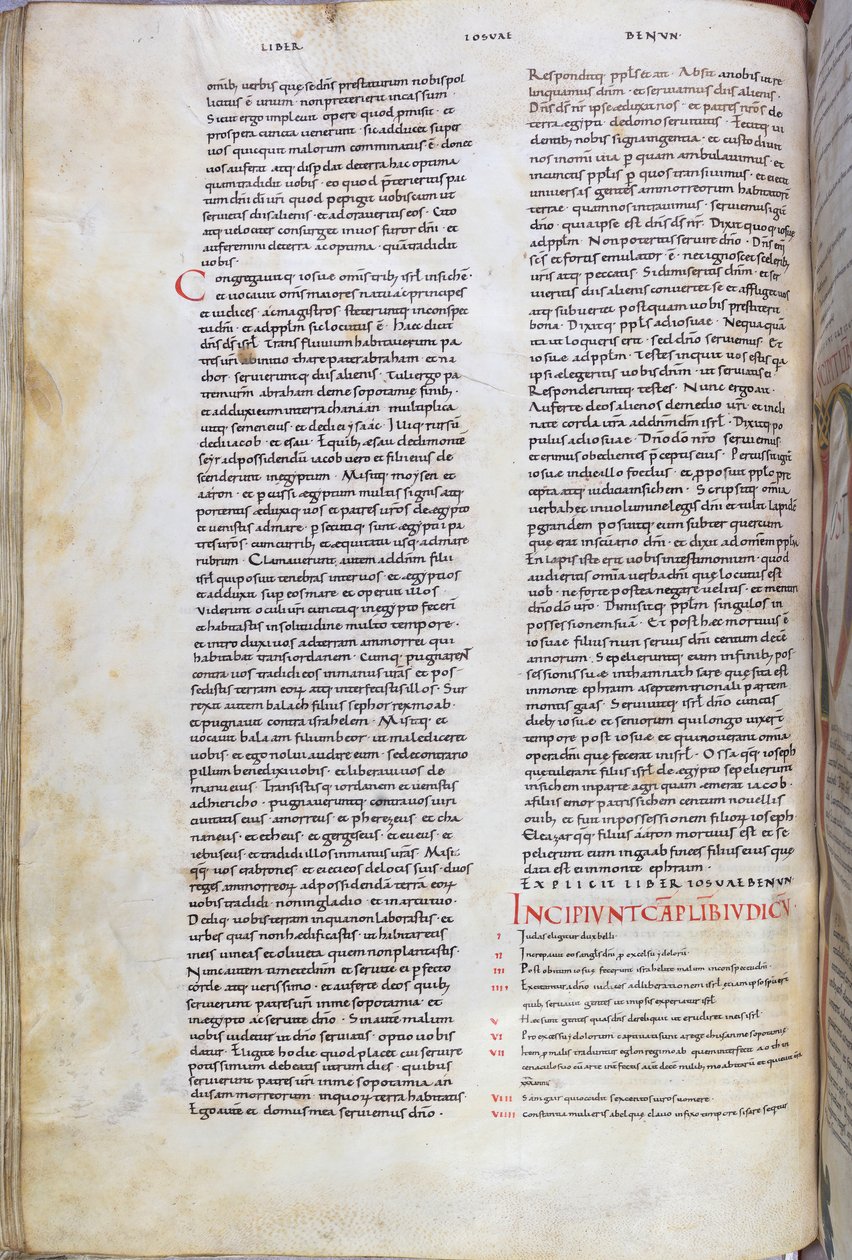 LIBER IOSUAE BENUN·
omĩb; verbis que se dñs prestaturum nobis pol
licitus ẽ unum · non preterierit incassum ·
Sicut ergo implevit opere quod p̱misit · et
prospera cuncta venerunt · sic adducet super
vos quicquit malorum comminatus ẽ · donec
vos auferat atq; disp̱dat de terra hac optima
quam tradidit vobis · eo quod p̃terieritis pac
tum dñi dĩ ur̃i quod pepigit vobiscum ut
serviretis diis alienis · et adoraveritis eos · Cito
atq; velociter consurget in vos furor dñi · et
auferemini de terra ac optima · quã tradidit
vobis ·
Congregavitq; iosuae om̃s trib; isrl̃ in sichẽ ·
et vocavit om̃s maiores natu ac principes
et iudices · ac magistros · steteruntq; in conspec
tu dñi · et ad pplm̃ sic locutus ẽ · Haec dicit
dñs ds̃ isrl̃ · Trans fluvium habitaverunt pa
tres ur̃i ab initio thare pater abraham · et na
chor · servieruntq; diis alienis · Tuli ergo pa
trem ur̃m abraham de mesopotamiae finib; ·
et adduxi eum in terra chanaan · multiplica
vitq; semen eius · et dedi ei ysaác · Illiq; rursũ
dedi iacob · et esau · E quib; aesau dedi montẽ
seyr ad possidendũ iacob vero et filii eius de
scenderunt in egyptum · Misitq; moysen et
aáron · et p̱cussi aegyptum multis signis atq;
portentis aeduxiq; vos et patres vr̃os de aegypto
et venistis ad mare · p̱secutiq; sunt aegyptii pa
tres ur̃os · cum currib; et aequitatu usq; ad mare
rubrum · Clamaverunt autem ad dñm filii
isrl̃ qui posuit tenebras inter vos · et aegyptios
et adduxit sup̱ eos mare et operuit illos ·
Viderunt oculi ur̃i cuncta q; in egypto fecerĩ
et habitastis in solitudine multo tempore ·
et introduxi vos ad terram ammorrei qui
habitabat trans iordanem · Cumq; pugnareñt
contra vos tradidi eos in manus ur̃as et pos
sedistis terram eoꝝ atq; interfecistis illos · Sur
rexit autem balach filius sephor rex moab ·
et pugnavit contra israhelem · Misitq; et
vocavit balaam filium beor · ut malediceret
vobis · et ego nolui audire eum · sed e contrario
p̱ illum benedixi vobis · et liberavi vos de
manu eius · Transistisq; iordanem et venistis
ad hiericho · pugnaveruntq; contra vos viri
civitatis eius · amorreus et pherezeus · et cha
naneus · et etheus · et gergeseus · et eveus · et
iebuseus · et tradidi illos in manus ur̃as · Misi
qq; vos crabrones · et eieci eos de locis suis · duos
reges ammorreoꝝ ad possidendã terrã eoꝝ
vobis tradidi · non in gladio · et in arcu tuo ·
Dediq; vobis terram in qua non laborastis · et
urbes quas non haedificastis · ut habitaretis
in eis vineas et oliveta quem non plantastis ·
Nunc autem timete dñm et servite ei p̱fecto
corde atq; verissimo · et auferte deos quib;
servierunt patres ur̃i in mesopotamia · et
in aegypto ac servite dño · Sin autem malum
vobis videtur ut dño serviatis · optio vobis
datur · Eligite hodie quod placet cui servire
potissimum debeatis utrum diis · quibus
servierunt patres ur̃i in mesopotamia an
diis amorreorum · in quoꝝ terra habitatis ·
Ego autẽ et domus mea serviemus dño ·
Responditq; ppls̃ et ait · Absit a nobis ut re
linquamus dñm · et serviamus diis alienis ·
Dñs ds̃ nr̃ ipse aeduxit nos · et patres nr̃os de
terra aegypti · de domo servitutis · Fecitq; vi
dentib; nobis signa ingentia · et custodivit
nos in om̃i via p̱ quam ambulavimus · et
in cunctis pplis p̱ quos transivimus · et eiecit
universas gentes ammorreorum habitatorẽ
terrae · quam nos intravimus · serviemus igit̃
dño · quia ipse est dñs ds̃ nr̃ · Dixit quoq; iosue
ad pplm̃ · Non potestis servire dño · Dñs eni
sc̃s et fortis emulator ẽ · nec ignoscet scelerib;
ur̃is atq; peccatis · Si dimiseritis dñm · et ser
vieritis diis alienis convertet se et affliget vos
atq; subvertet postquam vobis prestiterit
bona · Dixitq; ppls̃ ad iosuae · Nequaquã
ita ut loqueris erit · sed dño serviemus · Et
iosuae ad pplm̃ · Testes inquit vos estis qa
ipsi aelegeritis vobis dñm · ut serviatis ei ·
Responderuntq; testes · Nunc ergo ait ·
Auferte deos alienos de medio ur̃i · et incli
nate corda ur̃a ad dñm dm̃ isrl̃ · Dixitq; po
pulus ad iosuae · Dñó dõ nr̃o serviemus
et erimus obedientes p̃ceptis eius · Percussit igit̃
iosuae in die illo foedus · et p̱posuit pplo pre
cepta atq; iudicia in sichem · Scripsitq; om̃ia
verba hec in volumine legis dñi et tulit lapidẽ
p̱grandem posuitq; eum subter quercum
que erat in sc̃uario dñi · et dixit ad omnem pplm̃
En lapis iste erit vobis in testimonium · quod
audieritis om̃ia verba dñi que locutus est
vob · ne forte postea negare velitis · et mentiri
dño dõ ur̃o · Dimisitq; pplm̃ singulos in
possessionem suã · Et post haec mortuus ẽ
iosuae filius nun servus dñi centum decẽ
annorum · Sepelieruntq; eum in finib; pos
sessionis suae in thamnath sare que sita est
in monte ephraim · a septemtrionali partem
montis gaas · Servivitq; isrl̃ dño cunctis
dieb; iosuae et seniorum qui longo vixer̃t
tempore post iosuae · et qui noverant om̃ia
opera dñi que fecerat in isrl̃ · Ossa qq; ioseph
que tulerant filiis isrl̃ de aegypto sepelierunt
in sichem in parte agri quam aemerat iacob ·
a filiis emor patris sichem centum novellis
ovib; et fuit in possessionem filioꝝ ioseph
Eleazar qq; filius aáron mortuus est et se
pelierunt eum in gaab finees filius eius que
data est ei in monte ephraim ·
EXPLICIT LIBER IOSUAE BENUN·
INCIPIUNT CÃPL LIBRI IUDICŨ·
I Iudas eligitur dux belli ·
II Increpavit eos angls̃ dñi p̱ excelsu ydolorũ ·
III Post obitum iosuae fecerunt israhelite malum in conspectu dñi ·
IIII Excitantur a dño iudices ad liberationem isrl̃ etiam ipso spuerer̃t
quib; servavit gentes ut in ipsis experiatur isrl̃
V Hae sunt gentes quas dñs dereliquit ut erudiret in eis isrl̃ ·
VI Pro excessu ydolorum captivati sunt a rege chusan mesopotamie
VII Item p̱ malis traduntur eglon regi moab quem interfecit aoth in
cenaculo suo cũ arte
xxx annis
VIII Samgar qui occidit sexcentos viros vomere ·
VIIII Constantia mulieris abel que clavo infixo tempore sisare